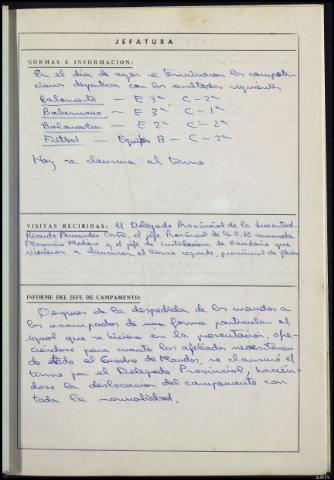 JEFATURA
NORMAS E INFORMACION:
En el dia de ayer se terminaron las competi-
ciones deportivas con los resultados siguientes
Baloncesto — E 3ª, C - 2ª
Balonmano — E 3ª, C - 1ª
Balonvolea — E 2ª C - 2ª
Futbol — Equipo B — C - 2ª
Hoy se clausura el turno
VISITAS RECIBIDAS: El Delegado Provincial de la Juventud
Ricardo Fernandez, el jefe Provincial de la O.JE camarada
Florencio y el jefe de Instalaciones de que
vinieron a clausurar el turno segundo, provincial de flechas
INFORME DEL JEFE DE CAMPAMENTO:
Despues de la despedida de los mandos a
los acampados de una forma particular al
igual que se hiciera en la presentación, ofre-
ciendose para cuanto los afiliados necesitaran
de todo el Cuadro de Mandos, se clausuró el
turno por el Delegado Provincial, hacién-
dose la deslocación del campamento con
toda la normalidad.